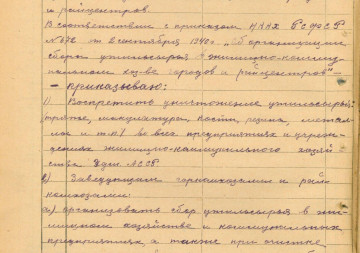 и райцентров.
В соответствии с приказом НККХ РСФСР
№ 672 от 2 сентября 1940г. "Об организации
сбора утильсырья в жилищно-комму-
нальном хоз-ве городов и райцентров"
— приказываю:
1) Воспретить уничтожение утильсырья:
тряпок, макулатуры, кости, резины, метал-
ла и т.п./ во всех предприятиях и учреж-
дениях жилищно-коммунального хозяй-
ства Удм. АССР.
2) Заведующим горкомхозами и рай-
комхозами:
а) организовать сбор утильсырья в жи-
лищном хозяйстве и коммунальных
предприятиях, а также при очистке